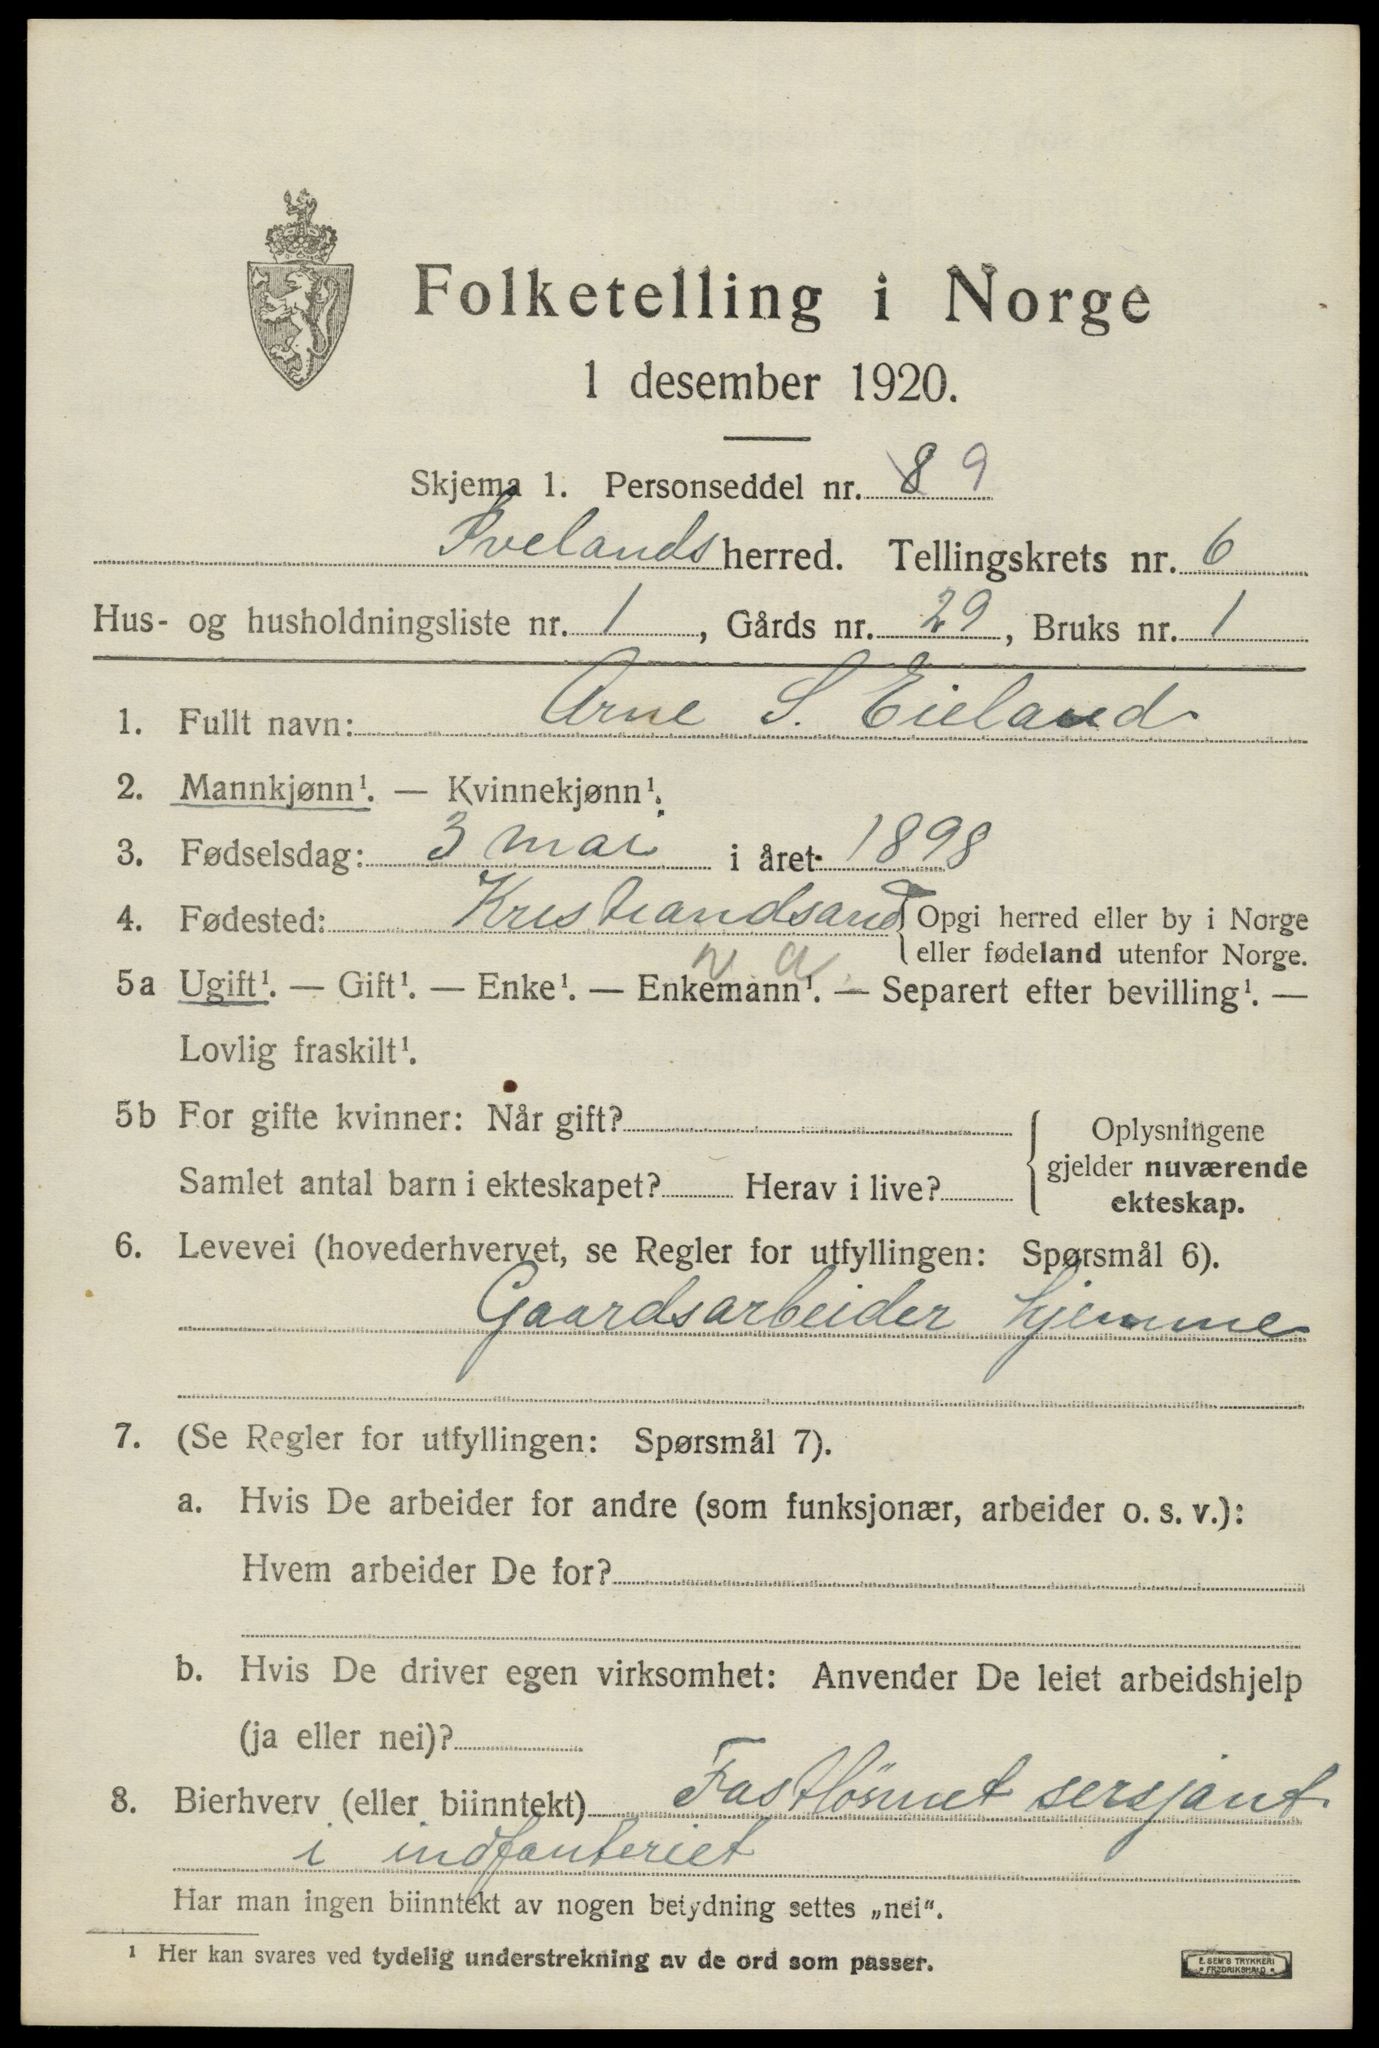 Folketelling i Norge
1 desember 1920.
Skjema 1. Personseddel nr. 8 9
Ivelands herred. Tellingskrets nr. 6
Hus- og husholdningsliste nr. 1, Gårds nr. 29, Bruks nr. 1
1. Fullt navn: Arne S. Eieland
2. Mannkjønn¹. — Kvinnekjønn¹.
3. Fødselsdag: 3 mai i året 1898
4. Fødested: Kristiandsand { Opgi herred eller by i Norge
eller fødeland utenfor Norge.
v. a.
5a Ugift¹. — Gift¹. — Enke¹. — Enkemann¹. — Separert efter bevilling¹. —
Lovlig fraskilt¹.
5b For gifte kvinner: Når gift?
Samlet antal barn i ekteskapet? Herav i live?
Oplysningene
gjelder nuværende
ekteskap.
6. Levevei (hovederhvervet, se Regler for utfyllingen: Spørsmål 6).
Gaardsarbeider hjemme
7. (Se Regler for utfyllingen: Spørsmål 7).
a. Hvis De arbeider for andre (som funksjonær, arbeider o. s. v.):
Hvem arbeider De for?
b. Hvis De driver egen virksomhet: Anvender De leiet arbeidshjelp
(ja eller nei)?
8. Bierhverv (eller biinntekt) Fastlönnet sersjant
i indfanteriet
Har man ingen biinntekt av nogen betydning settes „nei“.
¹ Her kan svares ved tydelig understrekning av de ord som passer.
E. SEM'S TRYKKERI
FREDRIKSHALD